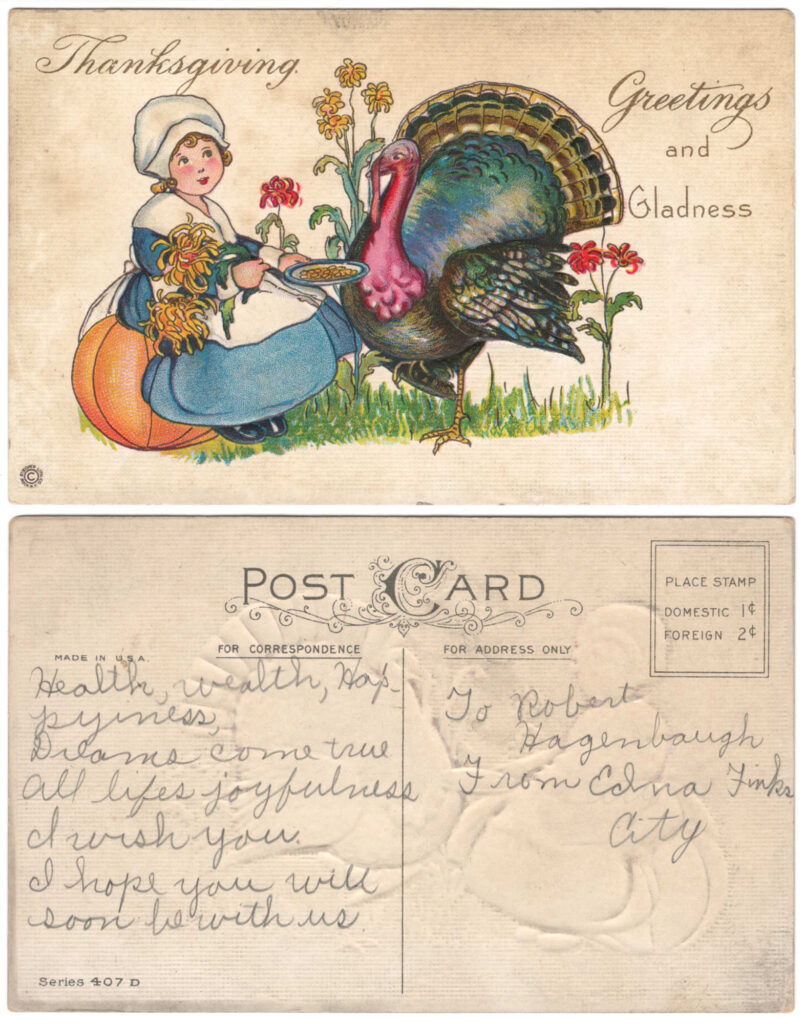 Thanksgiving
Greetings
and
Gladness
POST CARD
PLACE STAMP
DOMESTIC 1¢
FOREIGN 2¢
MADE IN U.S.A.
FOR CORRESPONDENCE
FOR ADDRESS ONLY
Health, wealth, Hap-
pyiness,
Dreams come true
All lifes joyfulness
I wish you.
I hope you will
soon be with us
To Robert
Hagenbaugh
From Edna Finks
City
Series 407 D